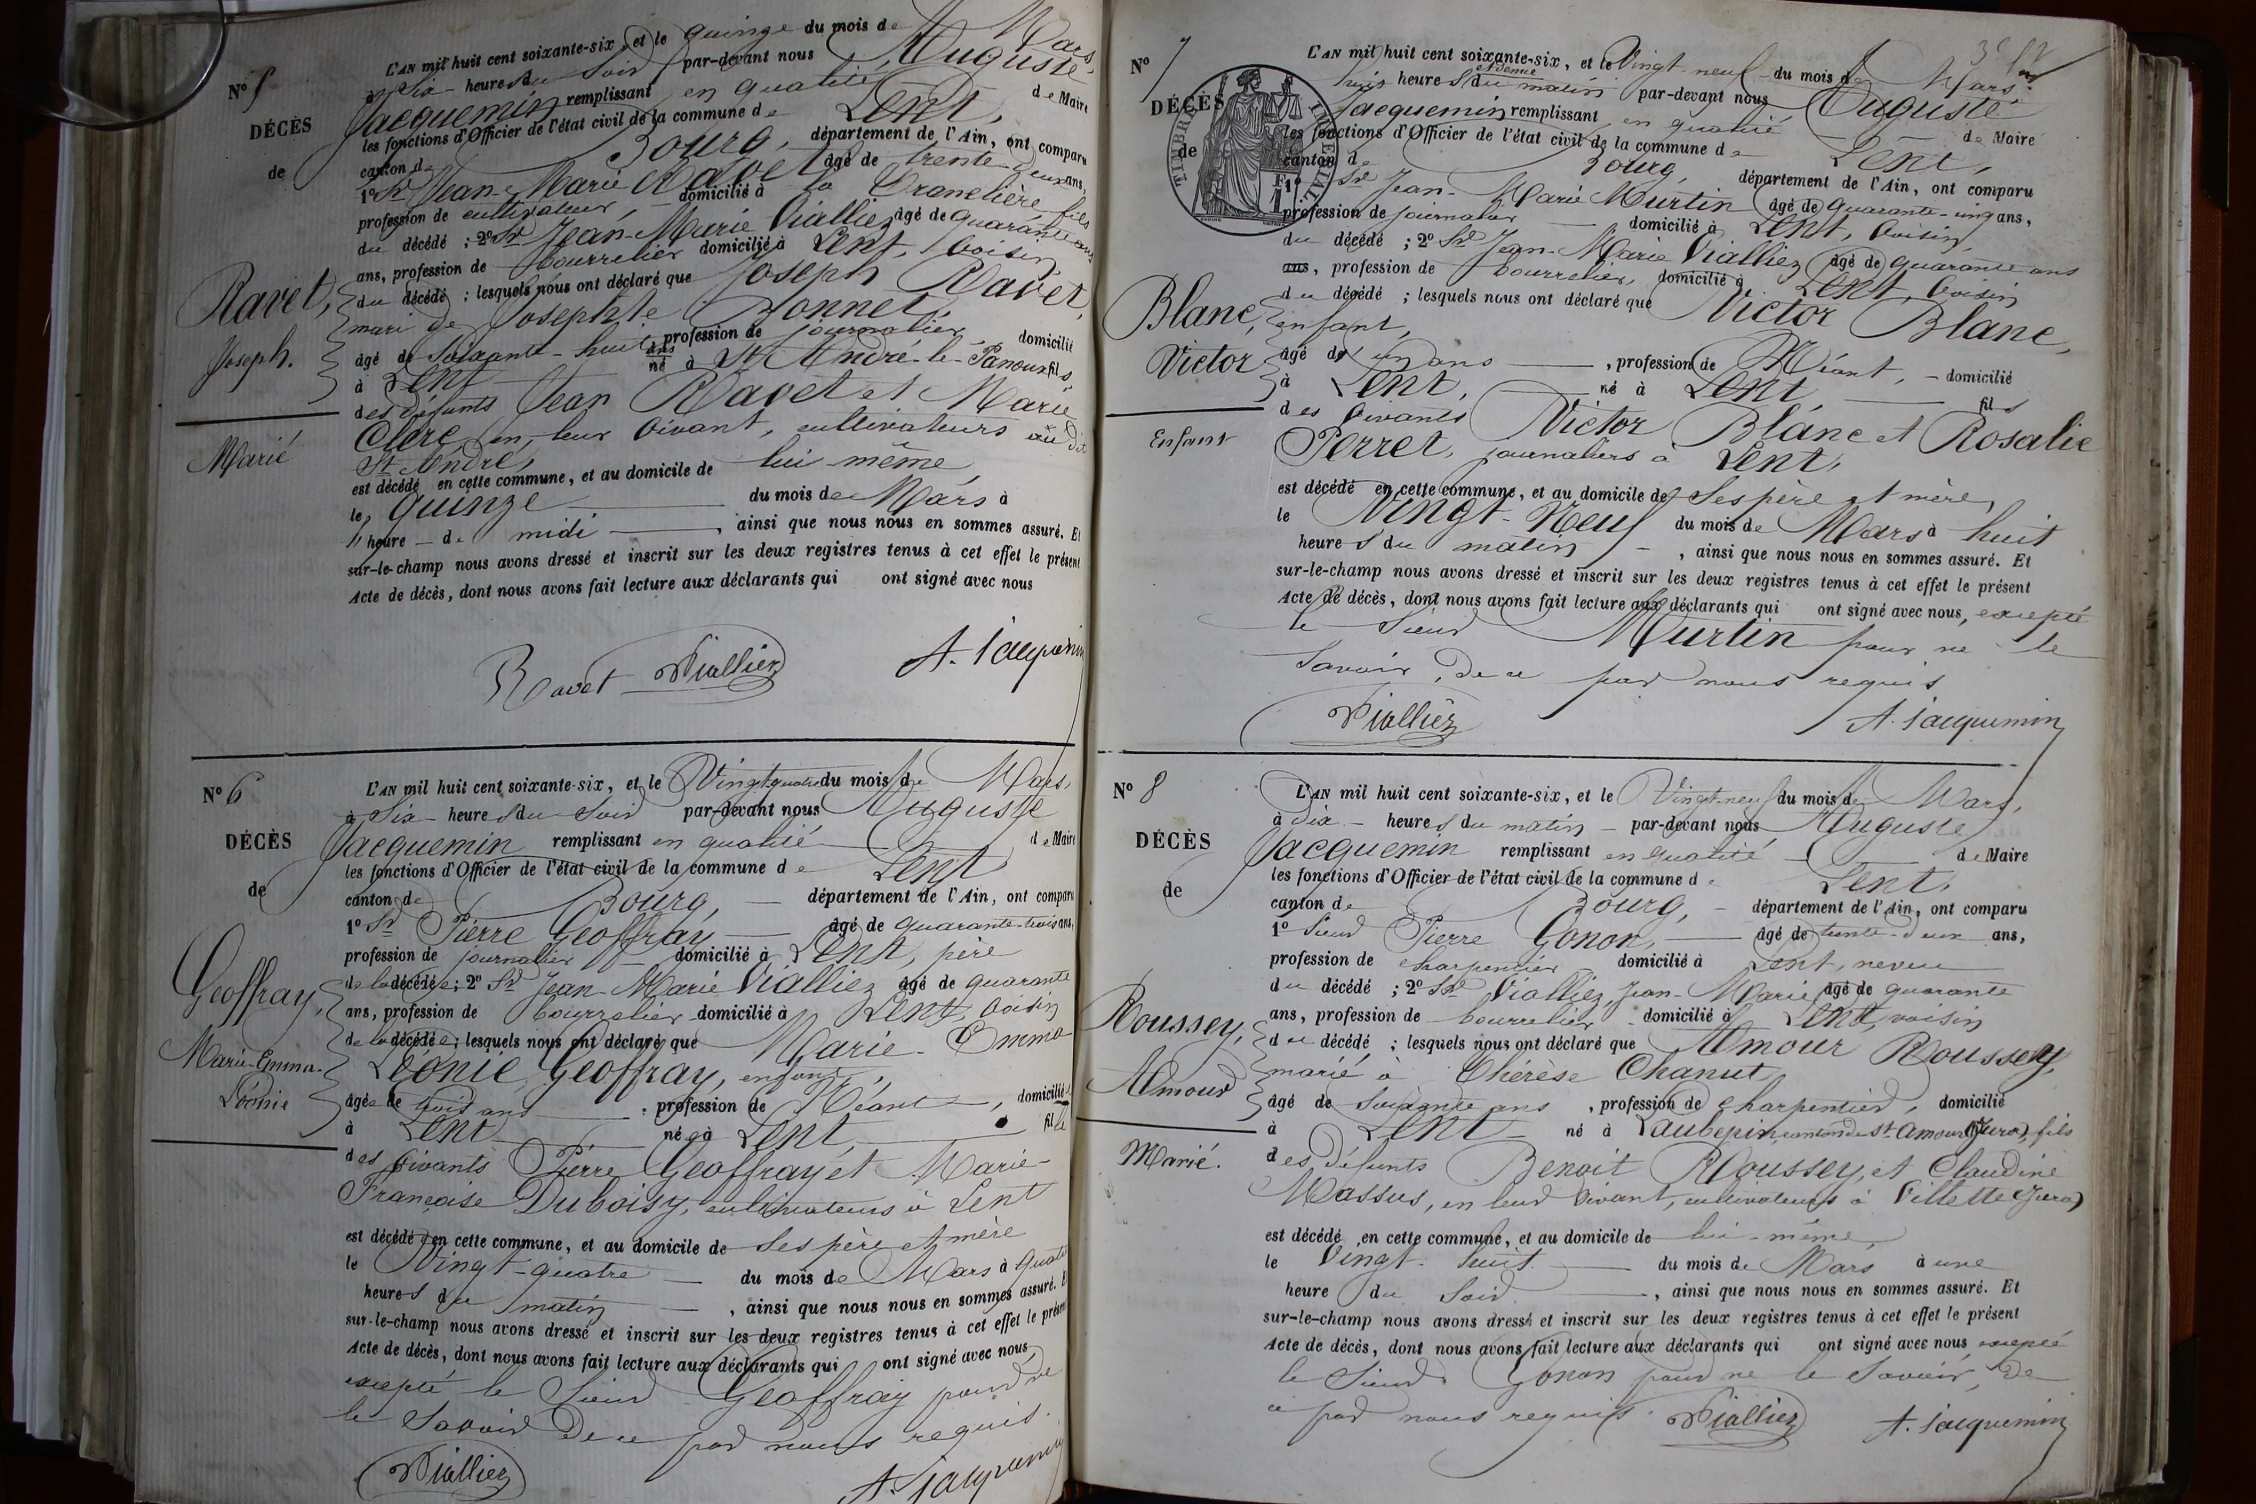 N° 5
DÉCÈS
de
Ravet,
Joseph.
Marié
L'AN mil huit cent soixante-six, et le quinze du mois de Mars,
à six heures du soir par-devant nous Auguste
Jacquemin remplissant en qualité de Maire
les fonctions d'Officier de l'état civil de la commune de Lent,
canton de Bourg, département de l'Ain, ont comparu
1° Sr Jean-Marie Ravet âgé de trente-deux ans,
profession de cultivateur, domicilié à la fils
du décédé ; 2° Sr Jean-Marie Vialliez âgé de quarante ans
ans, profession de bourrelier domicilié à Lent, voisin
du décédé ; lesquels nous ont déclaré que Joseph Ravet,
mari de Josephte Bonnet,
âgé de soixante-huit ans, profession de journalier, domicilié
à Lent né à St André-le-Panoux fils
des défunts Jean Ravet et Marie
Clerc, en leur vivant, cultivateurs au dit
St André,
est décédé en cette commune, et au domicile de lui-même
le quinze du mois de Mars à
heure de midi, ainsi que nous nous en sommes assuré. Et
sur-le-champ nous avons dressé et inscrit sur les deux registres tenus à cet effet le présent
Acte de décès, dont nous avons fait lecture aux déclarants qui ont signé avec nous
Ravet Vialliez A. Jacquemin
N° 6
DÉCÈS
de
Geoffray,
Marie-Emma-
Léonie
L'AN mil huit cent soixante-six, et le Vingt quatre du mois de Mars,
à six heures du soir par-devant nous Auguste
Jacquemin remplissant en qualité de Maire
les fonctions d'Officier de l'état civil de la commune de Lent
canton de Bourg, département de l'Ain, ont comparu
1° Sr Pierre Geoffray âgé de quarante-trois ans,
profession de journalier domicilié à Lent, père
de la décédée ; 2° Sr Jean-Marie Vialliez âgé de quarante
ans, profession de bourrelier domicilié à Lent, voisin
de la décédée ; lesquels nous ont déclaré que Marie-Emma
Léonie Geoffray, enfant,
âgée de trois ans, profession de Néant, domiciliée
à Lent née à Lent, fille
des vivants Pierre Geoffray et Marie-
Françoise Duboisy, cultivateurs à Lent
est décédé en cette commune, et au domicile de ses père et mère
le Vingt-quatre du mois de Mars à quatre
heures du matin, ainsi que nous nous en sommes assuré. Et
sur-le-champ nous avons dressé et inscrit sur les deux registres tenus à cet effet le présent
Acte de décès, dont nous avons fait lecture aux déclarants qui ont signé avec nous
excepté le Sieur Geoffray pour ne
le savoir de ce par nous requis.
Vialliez A. Jacquemin
N° 7
DÉCÈS
de
TIMBRE IMPÉRIAL
Blanc,
Victor
Enfant
L'AN mil huit cent soixante-six, et le Vingt-neuf du mois de Mars,
huit heures et demie du matin par-devant nous Auguste
Jacquemin remplissant en qualité de Maire
les fonctions d'Officier de l'état civil de la commune de Lent,
canton de Bourg, département de l'Ain, ont comparu
1° Sr Jean-Marie Murtin âgé de quarante-cinq ans,
profession de journalier domicilié à Lent, voisin
du décédé ; 2° Sr Jean-Marie Vialliez âgé de quarante ans
ans, profession de bourrelier, domicilié à Lent, voisin
du décédé ; lesquels nous ont déclaré que Victor Blanc,
enfant,
âgé de un ans, profession de Néant, domicilié
à Lent, né à Lent, fils
des vivants Victor Blanc et Rosalie
Perret, journaliers à Lent,
est décédé en cette commune, et au domicile de Ses père et mère,
le Vingt-Neuf du mois de Mars à huit
heures du matin, ainsi que nous nous en sommes assuré. Et
sur-le-champ nous avons dressé et inscrit sur les deux registres tenus à cet effet le présent
Acte de décès, dont nous avons fait lecture aux déclarants qui ont signé avec nous, excepté
le Sieur Murtin pour ne le
savoir, de ce par nous requis
Vialliez A. Jacquemin
N° 8
DÉCÈS
de
Roussey,
Amour
Marié.
L'AN mil huit cent soixante-six, et le Vingt-neuf du mois de Mars,
à dix heures du matin par-devant nous Auguste
Jacquemin remplissant en qualité de Maire
les fonctions d'Officier de l'état civil de la commune de Lent,
canton de Bourg, département de l'Ain, ont comparu
1° Sieur Pierre Gonon, âgé de trente-deux ans,
profession de charpentier domicilié à Lent, neveu
du décédé ; 2° Sr Vialliez, Jean-Marie, âgé de quarante
ans, profession de bourrelier domicilié à Lent, voisin
du décédé ; lesquels nous ont déclaré que Amour Roussey,
marié à Thérèse Chanut,
âgé de soixante ans, profession de charpentier, domicilié
à Lent né à Laubepin, canton de St-Amour (Jura), fils
des défunts Benoit Roussey, et Claudine
Massus, en leur vivant, cultivateurs à Villette (Jura)
est décédé en cette commune, et au domicile de lui-même,
le Vingt-huit du mois de Mars à une
heure du soir, ainsi que nous nous en sommes assuré. Et
sur-le-champ nous avons dressé et inscrit sur les deux registres tenus à cet effet le présent
Acte de décès, dont nous avons fait lecture aux déclarants qui ont signé avec nous excepté
le Sieur Gonon pour ne le savoir, de
ce par nous requis. Vialliez A. Jacquemin